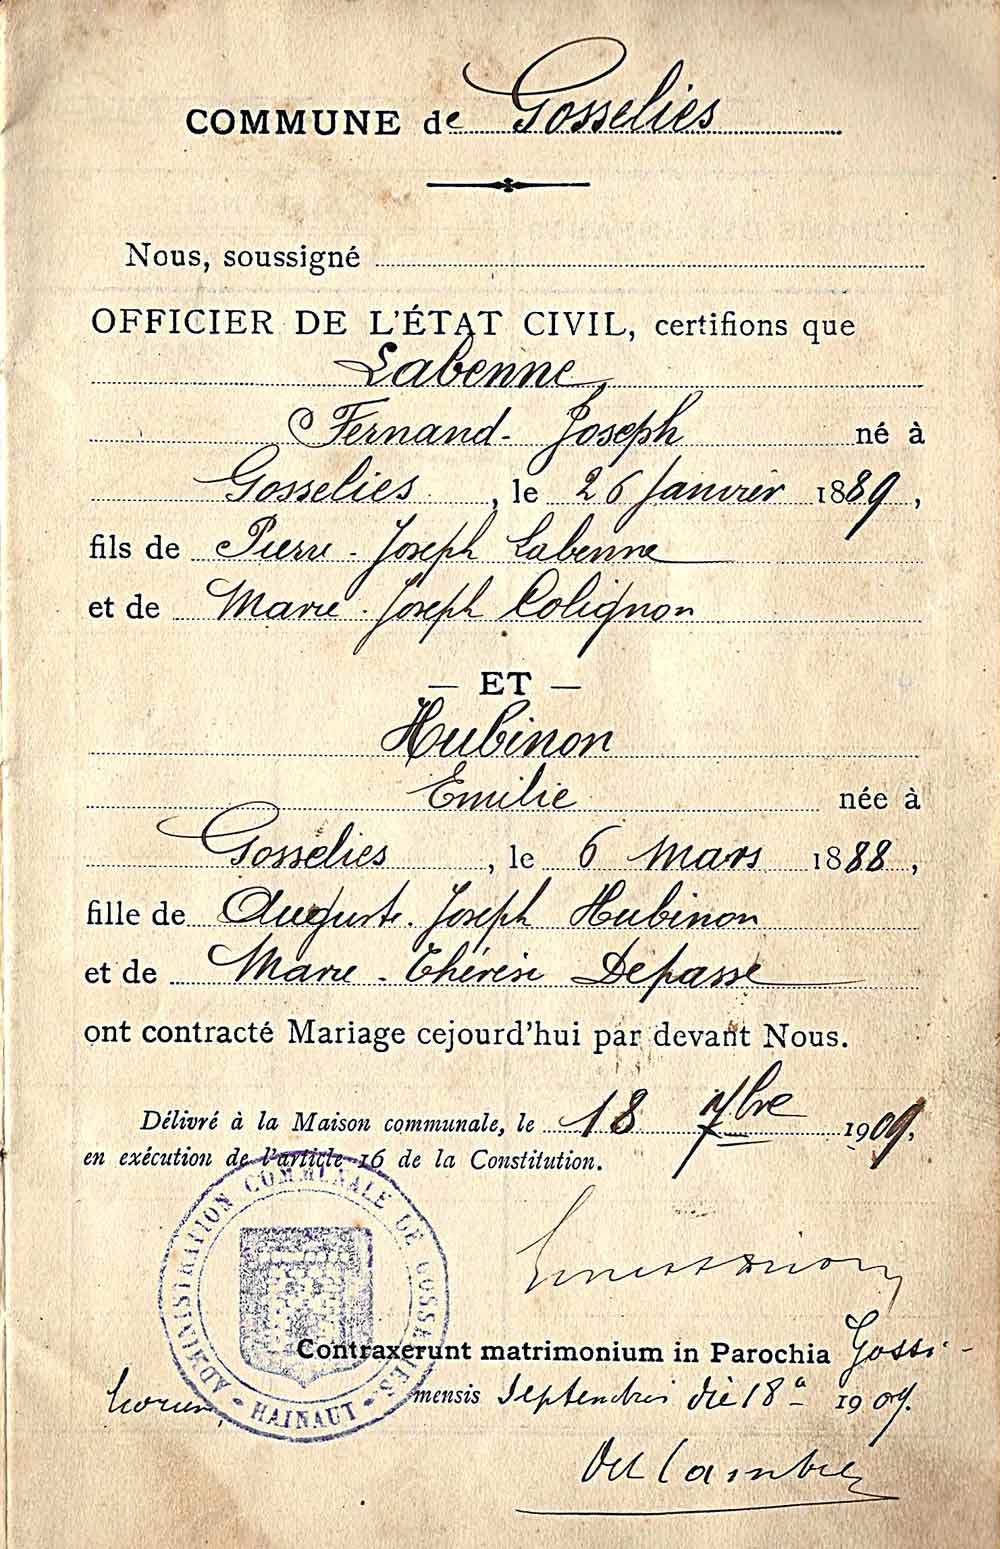 COMMUNE de Gosselies
Nous, soussigné
OFFICIER DE L'ÉTAT CIVIL, certifions que
Labenne,
Fernand-Joseph né à
Gosselies, le 26 Janvier 1889,
fils de Pierre-Joseph Labenne
et de Marie-Joseph Colignon
— ET —
Hubinon
Emilie née à
Gosselies, le 6 Mars 1888,
fille de Auguste-Joseph Hubinon
et de Marie-Thérèse Depasse
ont contracté Mariage cejourd'hui par devant Nous.
Délivré à la Maison communale, le 18 7bre 1909,
en exécution de l'article 16 de la Constitution.
ADMINISTRATION COMMUNALE DE GOSSELIES
HAINAUT
Contraxerunt matrimonium in Parochia Gossi-
mensis Septembris die 18a 1909.